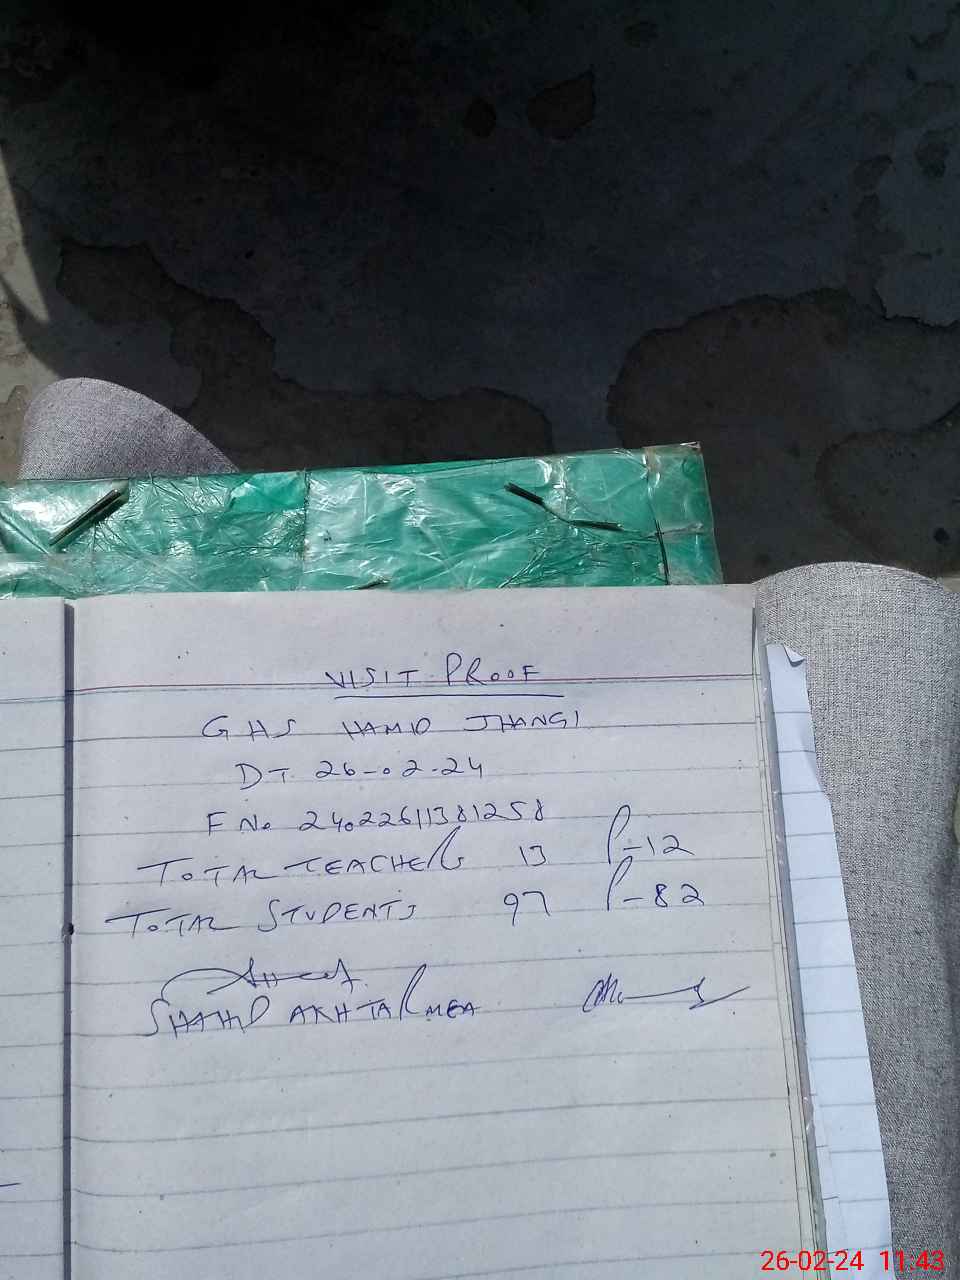 VISIT PROOF
GHS HAMID JHANGI
DT. 26-02-24
F No 24022611381258
TOTAL TEACHER 13 P-12
TOTAL STUDENTS 97 P-82
SHAHID AKHTAR MEA
26-02-24 11:43